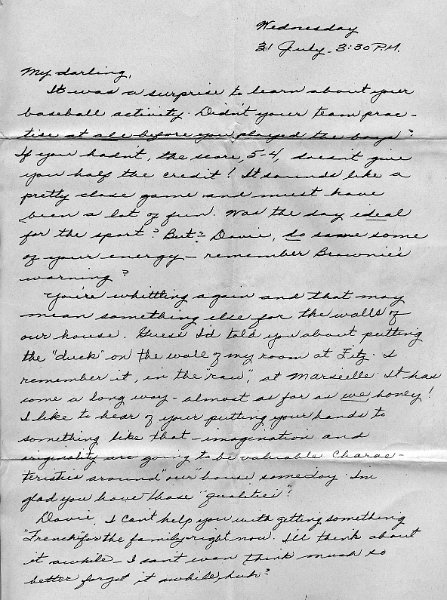 Wednesday
31 July - 3:30 P.M.
My darling,
It was a surprise to learn about your
baseball activity. Didn't your team prac-
tise at all before you played the boys?
If you hadn't, the score, 5-4, doesn't give
you half the credit! It sounds like a
pretty close game and must have
been a lot of fun. Was the day ideal
for the sport? But - Davie, so save some
of your energy - remember Brownie's
warning?
You're whittling again and that may
mean something else for the walls of
our house. Guess I'd told you about putting
the "duck" on the wall of my room at Fitz. I
remember it, in the "raw", at Marseille. It has
come a long way - almost as far as we honey!
I like to hear of your putting your hands to
something like that - imagination and
originality are going to be valuable charac-
teristics around "our" house someday. I'm
glad you have those "qualities"!
Davie, I can't help you with getting something
"French" for the family right now. I'll think about
it awhile - I don't even think much so
better forget it awhile, huh?